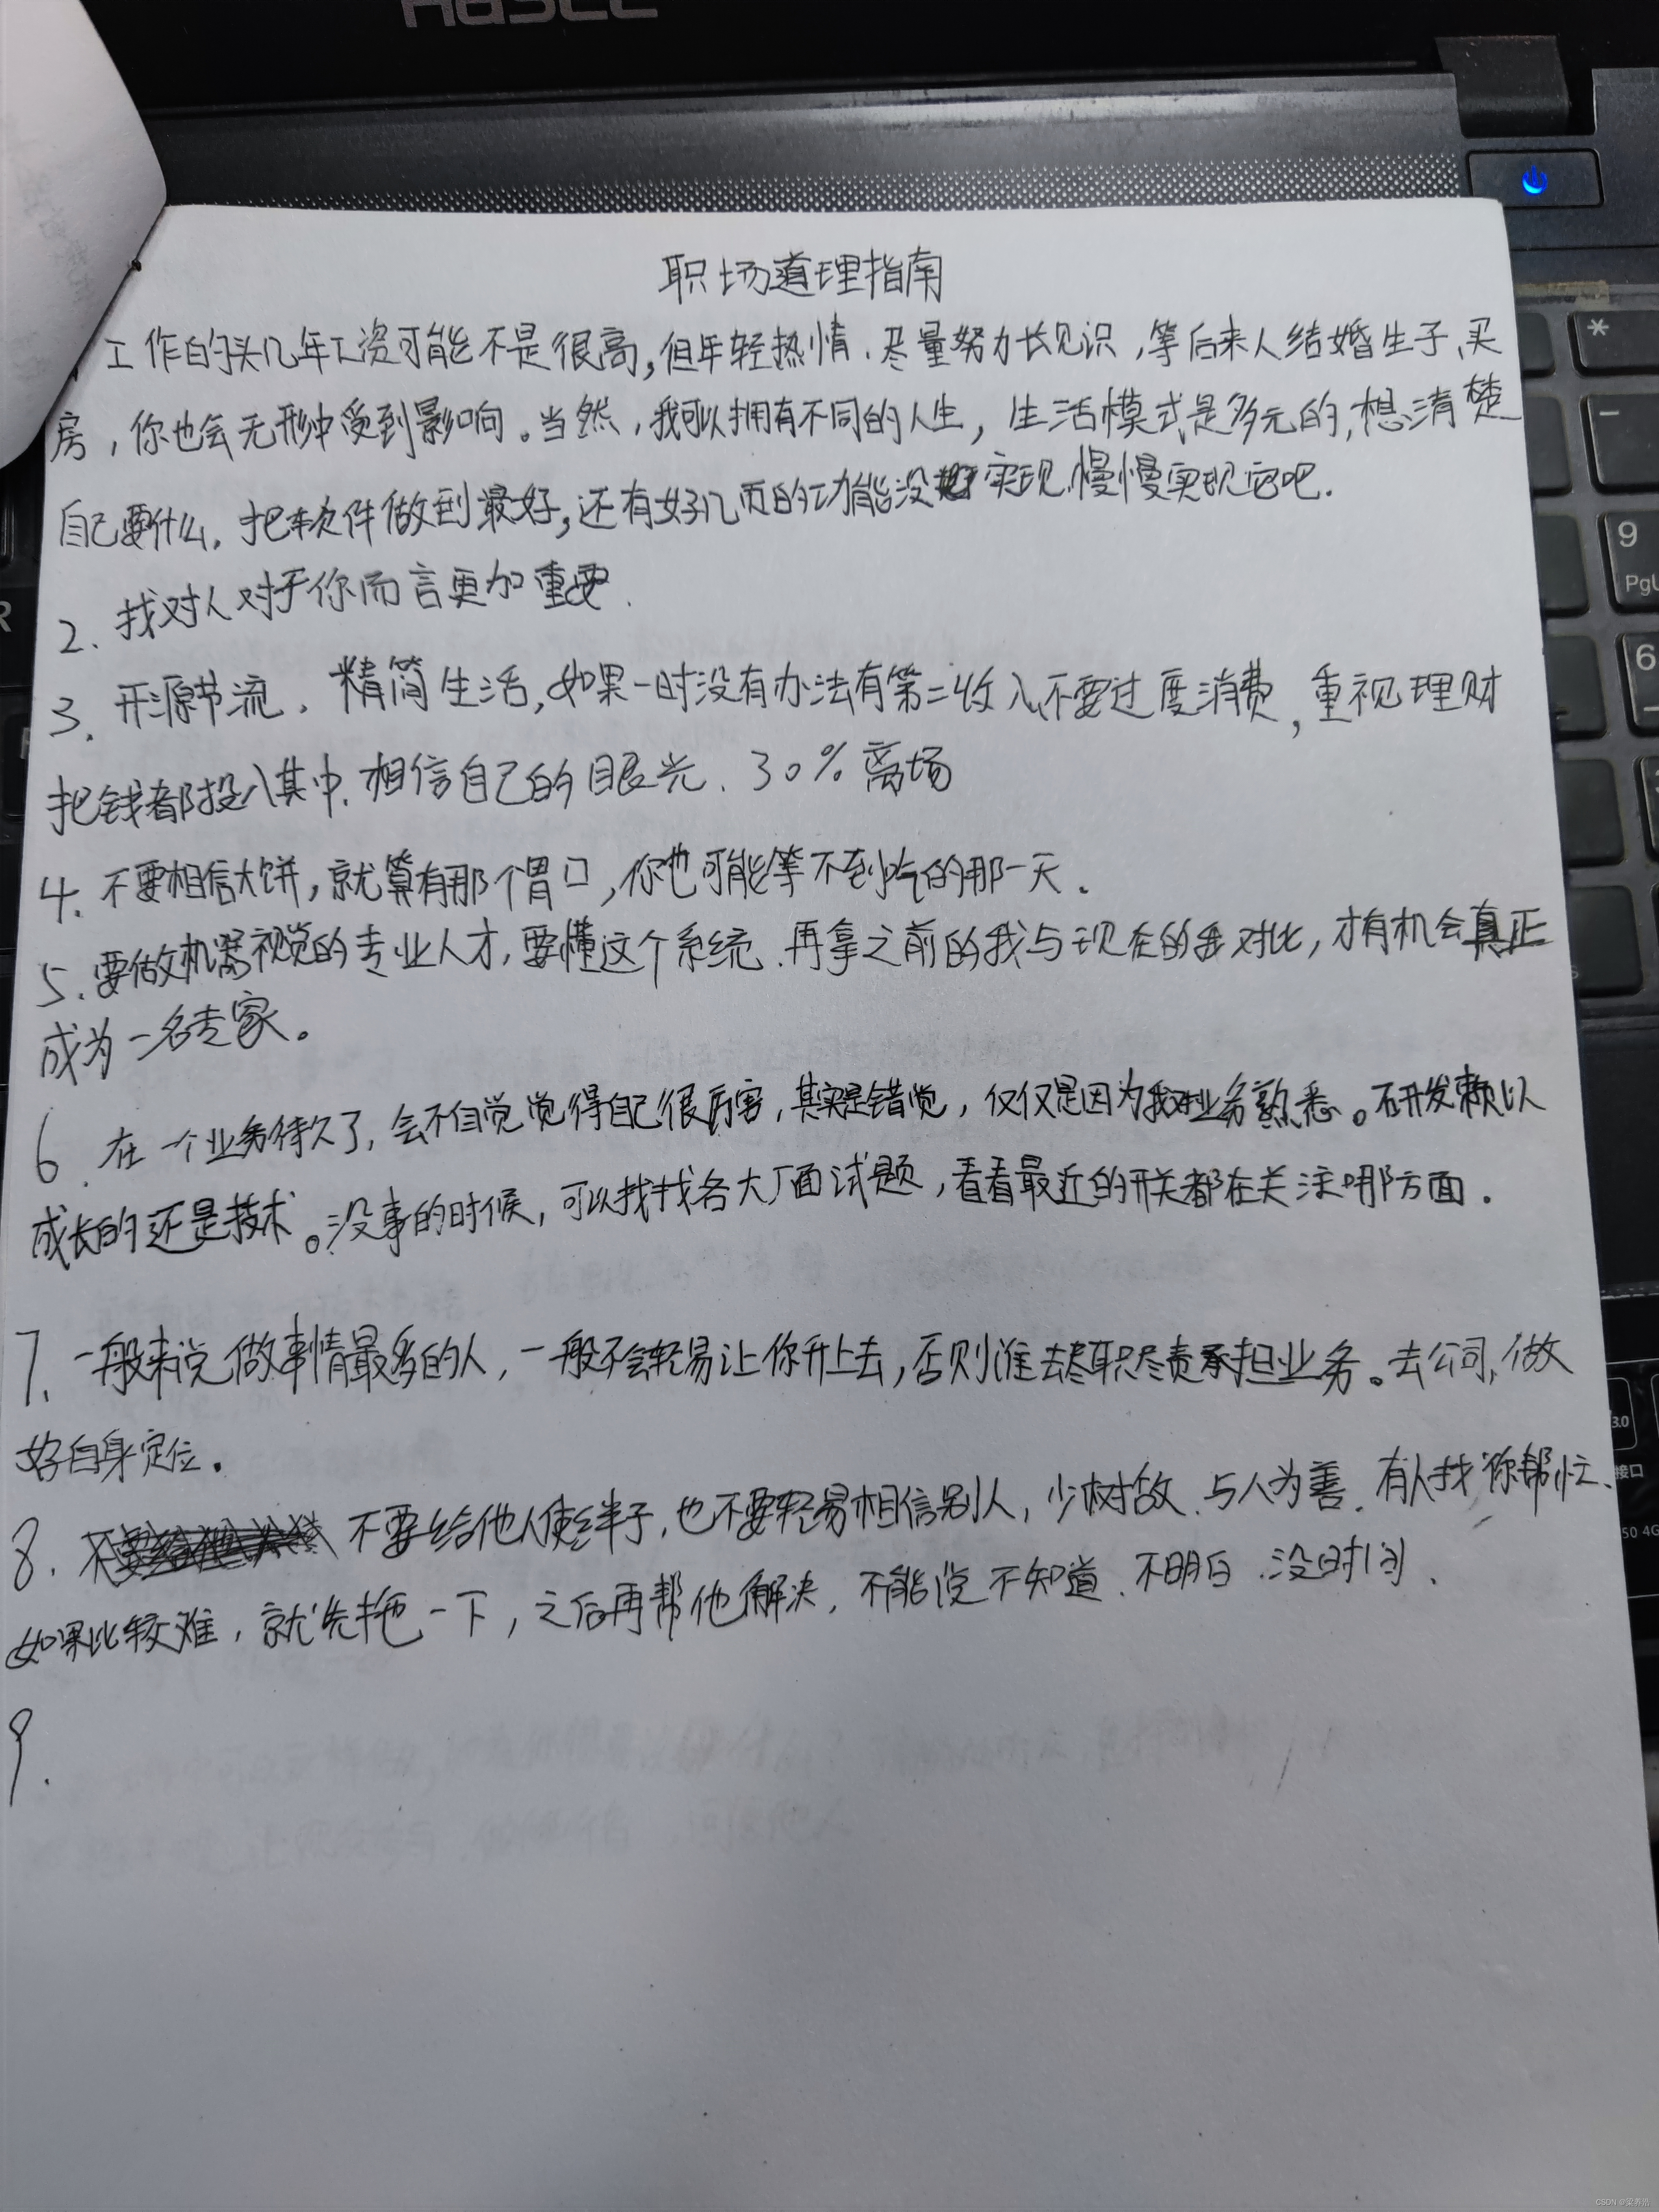 Hasee
职场道理指南
工作的头几年工资可能不是很高,但年轻热情、尽量努力长见识,等后来人结婚生子、买
房,你也会无形中受到影响。当然,我可以拥有不同的人生,生活模式是多元的,想清楚
自己要什么.把软件做到最好,还有好几页的功能没实现,慢慢实现它吧.
2、找对人对于你而言更加重要.
3、开源节流、精简生活,如果一时没有办法有第二收入,不要过度消费,重视理财
把钱都投入其中、相信自己的眼光、30%离场
4、不要相信大饼,就算有那个胃口,你也可能等不到吃的那一天.
5、要做机器视觉的专业人才,要懂这个系统、再拿之前的我与现在的我对比,才有机会真正
成为一名专家。
6、在一个业务待久了,会不自觉觉得自己很厉害,其实是错觉,仅仅是因为我对业务熟悉。研发赖以
成长的还是技术。没事的时候,可以找找各大厂面试题,看看最近的开关都在关注哪方面.
7、一般来说做事情最多的人,一般不会轻易让你升上去,否则谁去尽职尽责承担业务。去公司,做
好自身定位.
8、不要给他人使绊子,也不要轻易相信别人,少树敌、与人为善、有人找你帮忙、
如果比较难,就先拖一下,之后再帮他解决,不能说不知道、不明白、没时间、
9.
*
-
9
PgU
6
R
3.0
接口
50 4G
CSDN @梁养浩